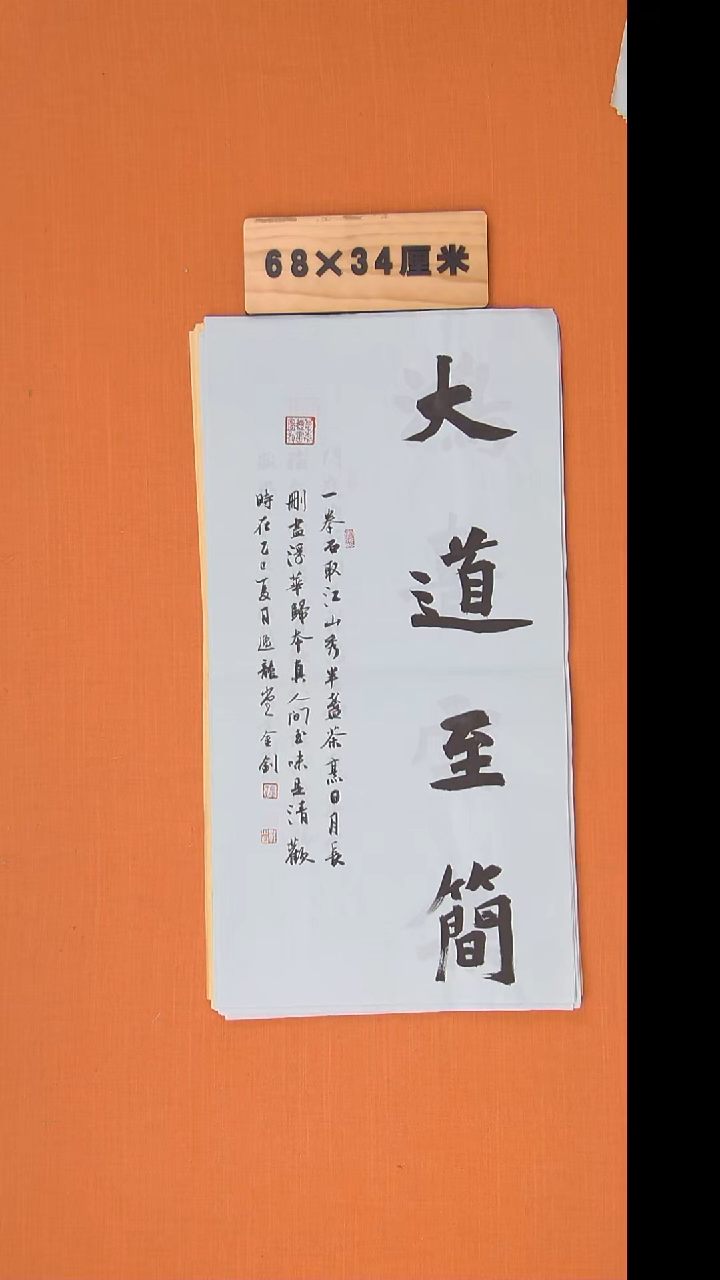 68×34厘米
大道至簡
一拳石取江山秀半盞茶烹日月長
刪盡浮華歸本真人間至味是清歡
時在乙巳夏月 龍堂金劍